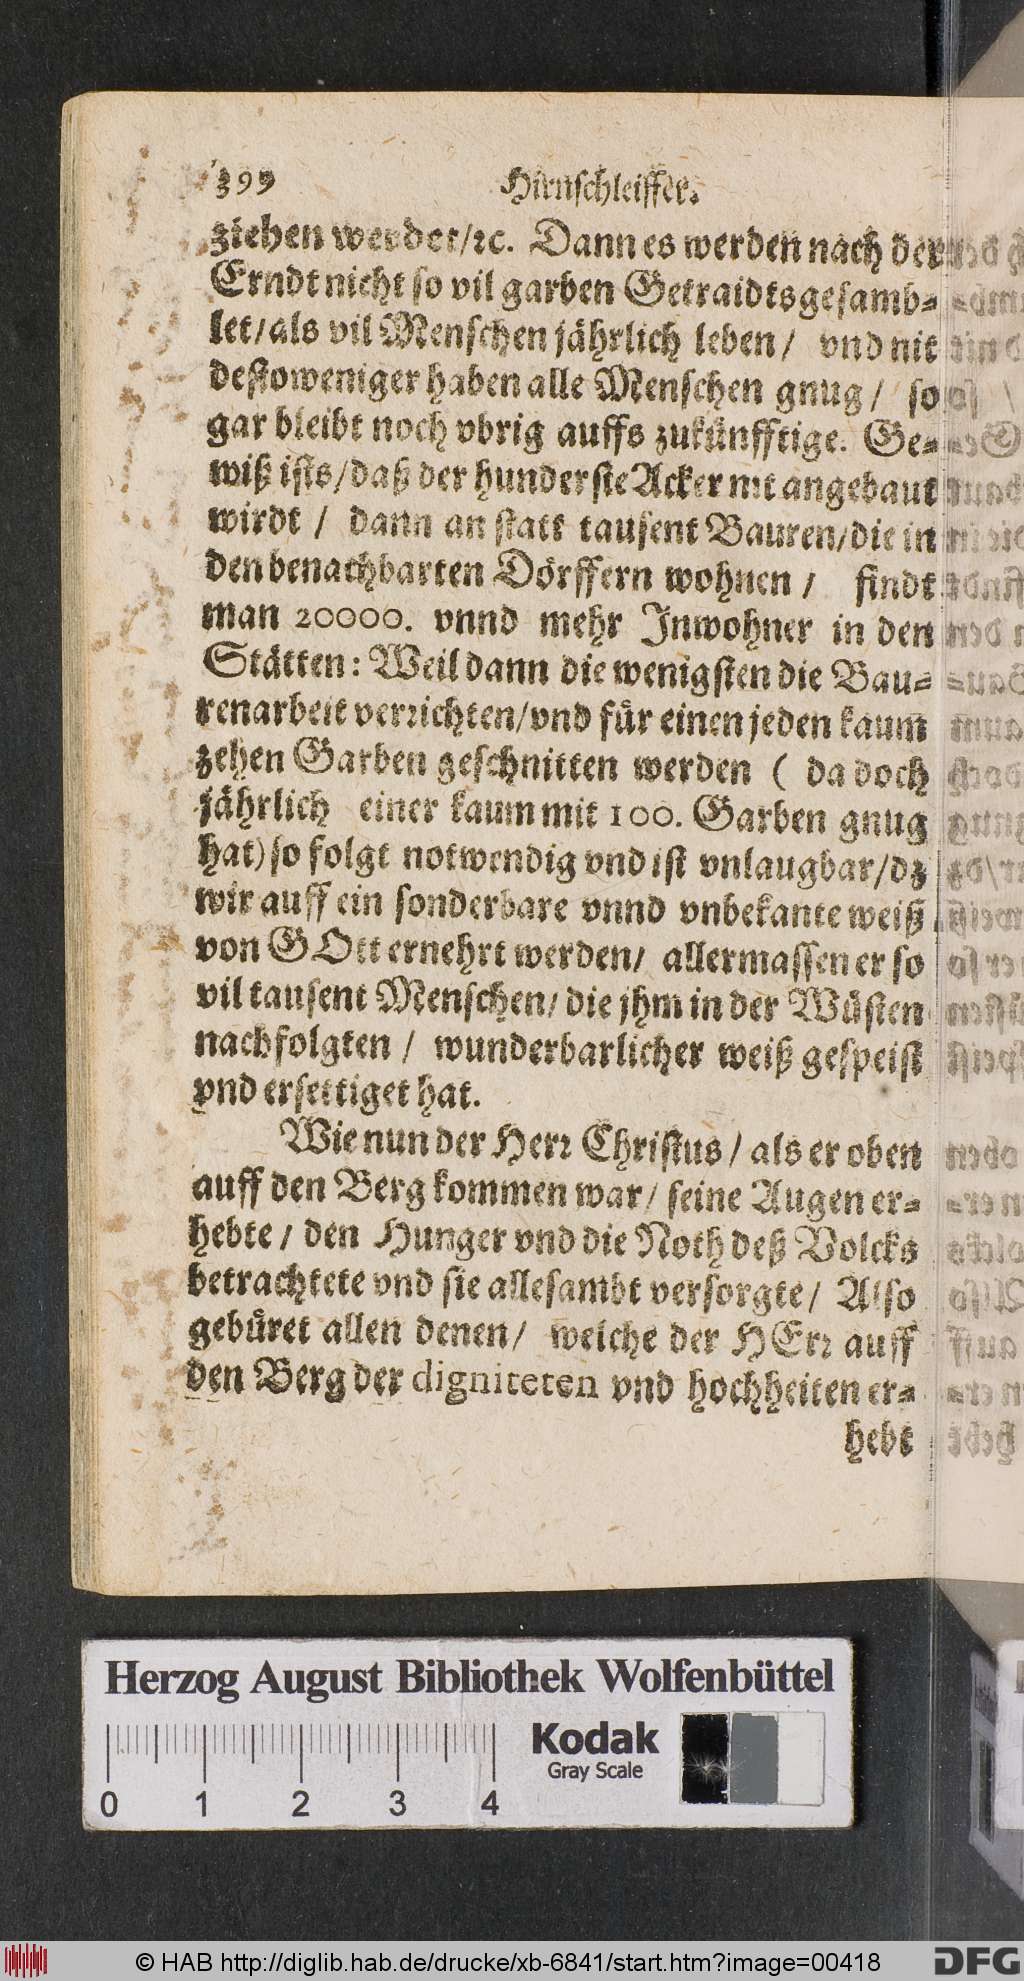 399 Hirnschleiffer.
ziehen werdet/ꝛc. Dann es werden nach der
Erndt nicht so vil garben Getraidts gesamb-
let/als vil Menschen jährlich leben/ vnd nit
destoweniger haben alle Menschen gnug/ so
gar bleibt noch vbrig auffs zukünfftige. Ge-
wiß ists/daß der hunderste Acker nit angebaut
wirdt/ dann an statt tausent Bauren/die in
den benachbarten Dörffern wohnen/ findt
man 20000. vnnd mehr Inwohner in den
Stätten: Weil dann die wenigsten die Bau-
renarbeit verꝛichten/vnd für einen jeden kaum̅
zehen Garben geschnitten werden ( da doch
jährlich einer kaum mit 100. Garben gnug
hat) so folgt notwendig vnd ist vnlaugbar/dz
wir auff ein sonderbare vnnd vnbekante weiß
von GOtt ernehrt werden/ allermassen er so
vil tausent Menschen/die jhm in der Wüsten
nachfolgten/ wunderbarlicher weiß gespeist
vnd ersettiget hat.
Wie nun der Herꝛ Christus/als er oben
auff den Berg kommen war/ seine Augen er-
hebte/ den Hunger vnd die Noth deß Volcks
betrachtete vnd sie allesambt versorgte/ Also
gebüret allen denen/ welche der HErꝛ auff
den Berg der digniteten vnd hochheiten er-
hebt
Herzog August Bibliothek Wolfenbüttel
Kodak
Gray Scale
0 1 2 3 4
© HAB http://diglib.hab.de/drucke/xb-6841/start.htm?image=00418
DFG